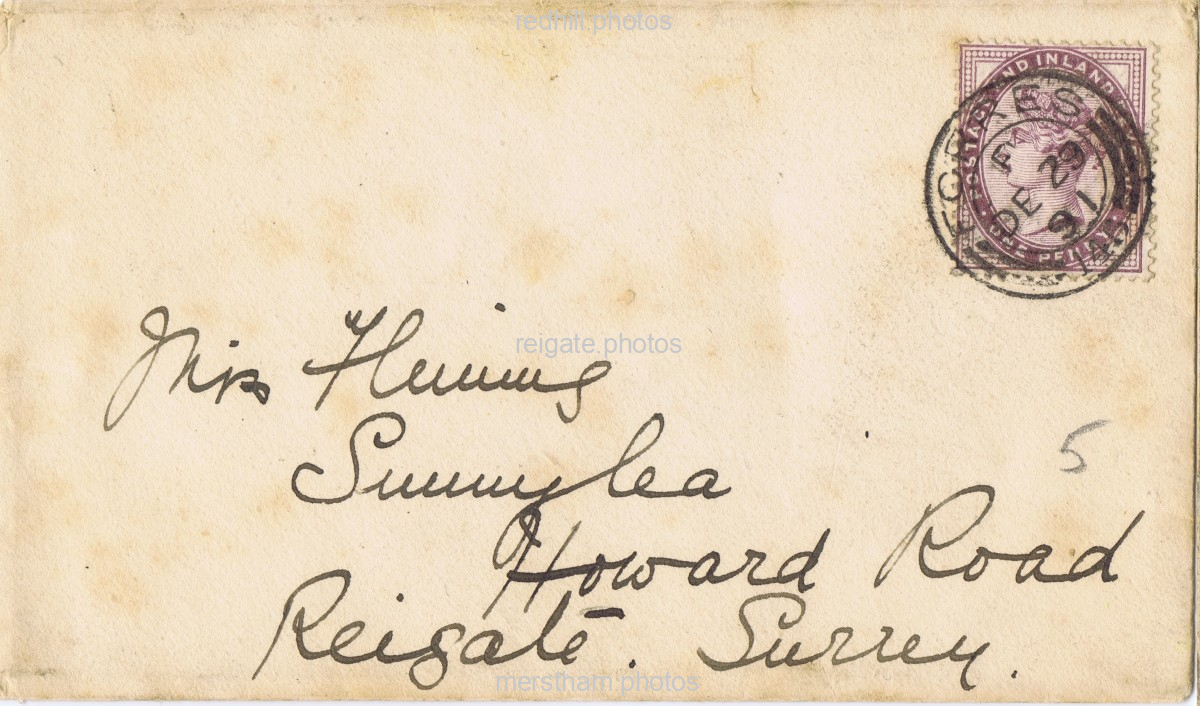 redhill.photos
POSTAGE AND INLAND REVENUE
ONE PENNY
F
DE 29
91
reigate.photos
Miss Fleming
Sunnylea
5
Howard Road
Reigate. Surrey.
merstham.photos